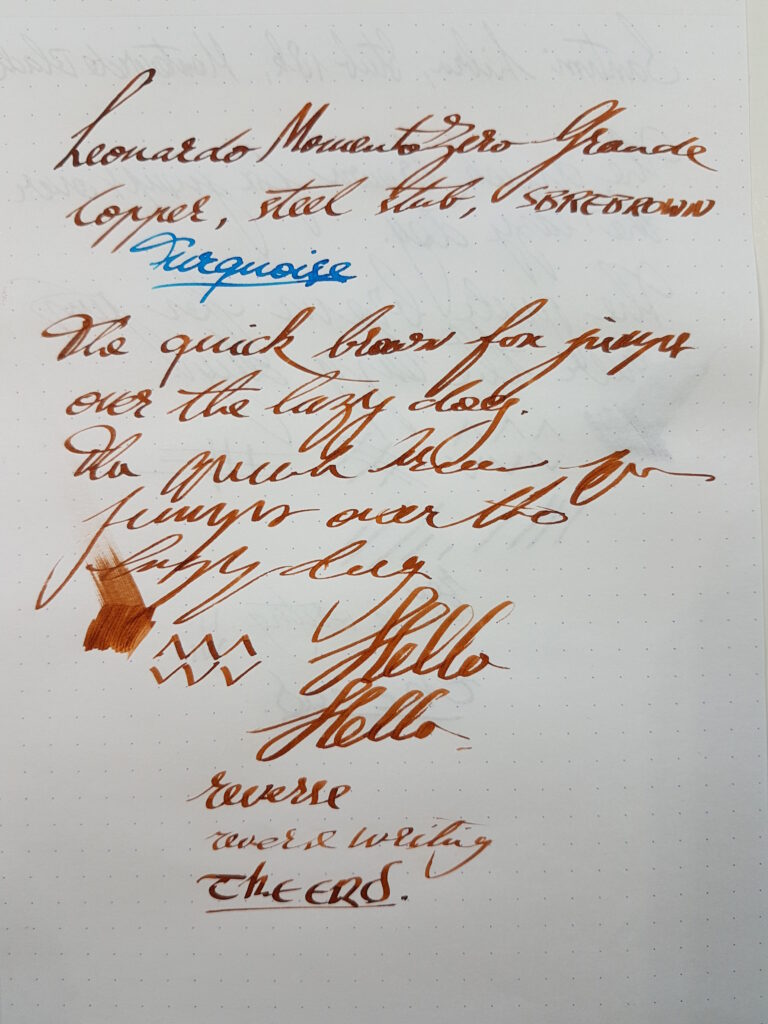 Leonardo Momento Zero Grande
Copper, steel stub, SBREBROWN
Turquoise
The quick brown fox jumps
over the lazy dog.
The quick brown fox
jumps over the
lazy dog
Hello
Hello
reverse
reverse writing
THE END.